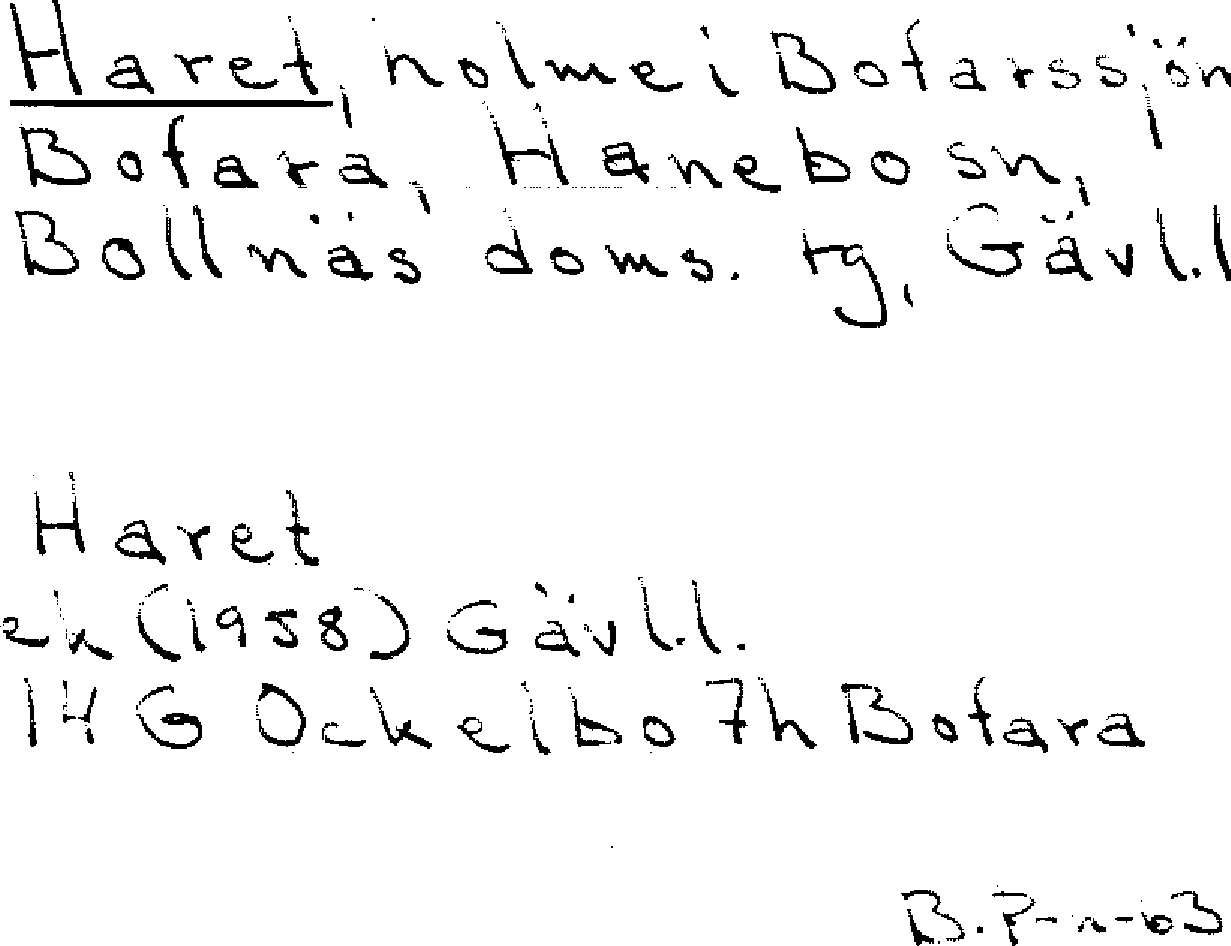 Haret, holme i Bofarssjön
Bofara, Hanebo sn,
Bollnäs doms. rg, Gävl.l
Haret
ek (1958) Gävl.l.
14 G Ockelbo 7h Bofara